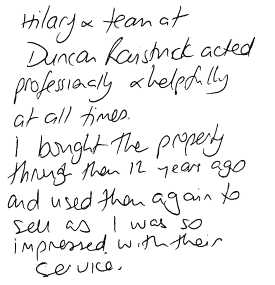 Hilary & team at
Duncan Ranstruck acted
professionally & helpfully
at all times.
I bought the property
through them 12 years ago
and used them again to
sell as I was so
impressed with their
service.